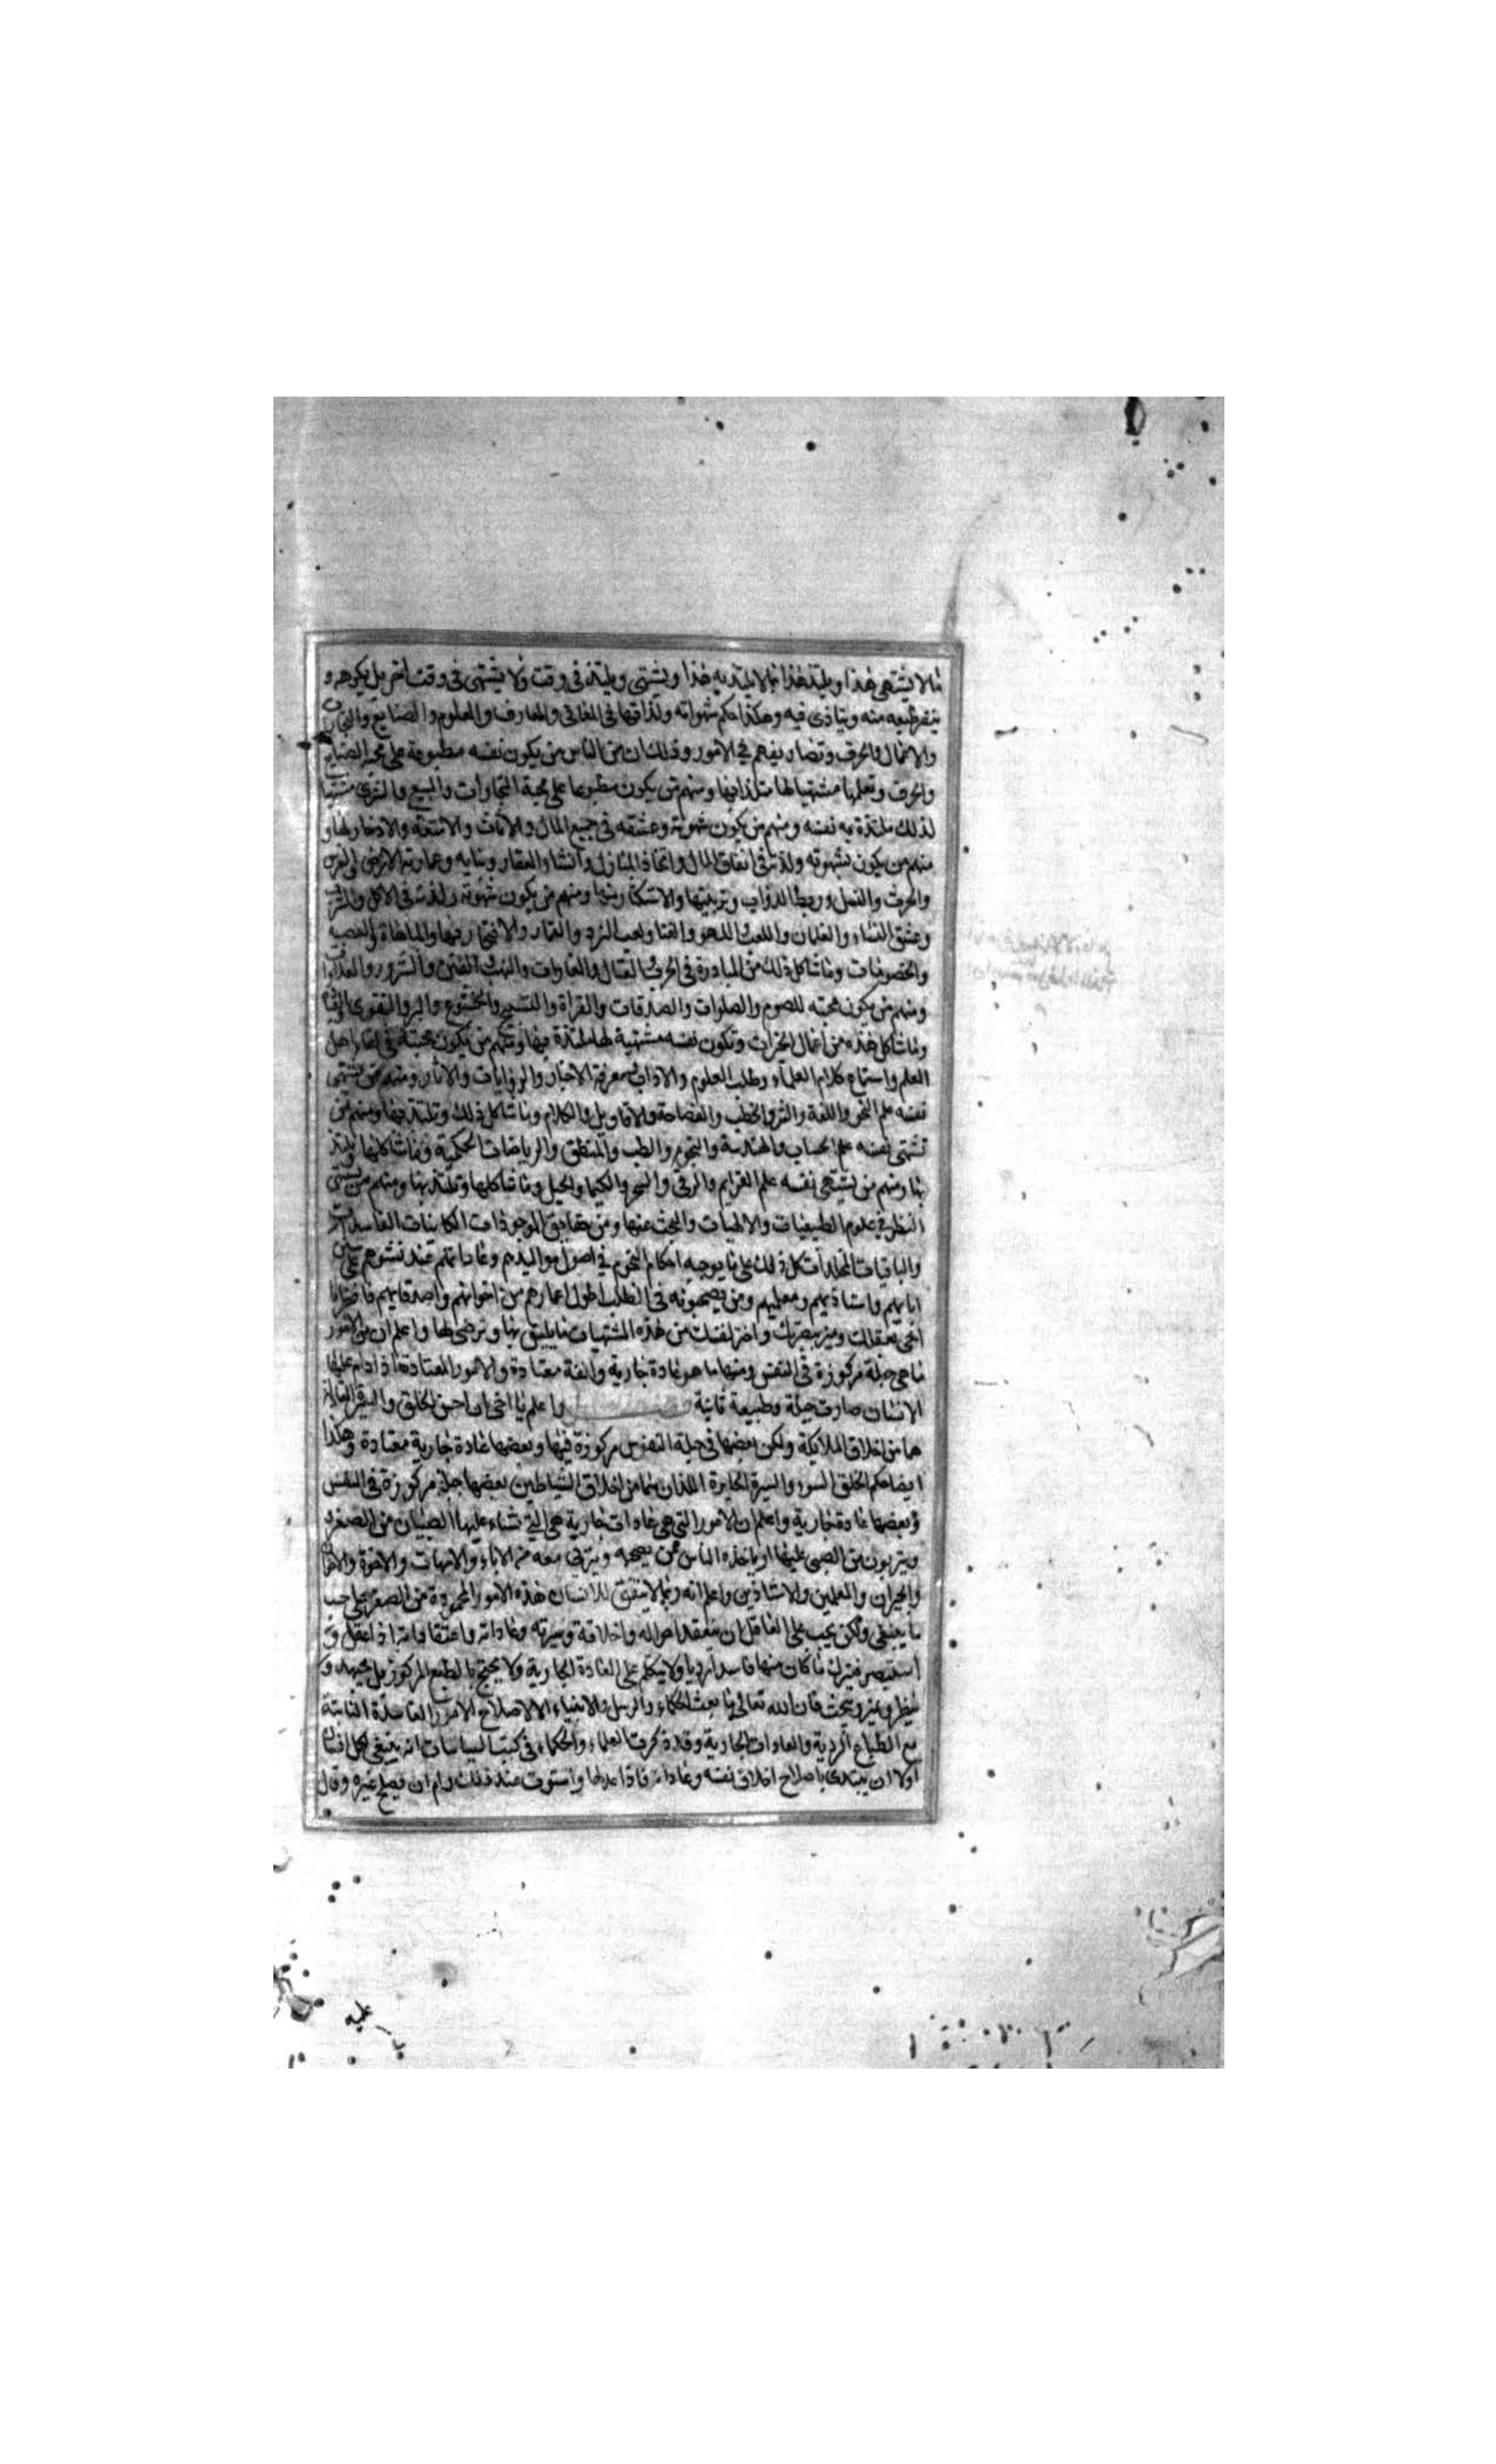 ما لا يشتهى هذا ويلتذ هذا بما لا يلتذ به هذا ويشتهى ويلتذ فى وقت ولا يشتهى فى وقت اخر بل يكرهه و
ينفر طبعه منه ويتاذى فيه وهكذا حكم شهواته ولذاتها فى المعانى والمعارف والعلوم والصنايع والتجارات
والاعمال والحرف وتصاريفهم فى الامور وذلك ان من الناس من يكون نفسه مطبوعة على الصنايع
والحرف وتعلمها مشتهيا لها متلذذا بها ومنهم من يكون مطبوعا على محبة التجارات والبيع والشرى مشتهيا
لذلك ملتذة به نفسه ومنهم من يكون شهوته وعشقه فى جمع المال والاثاث والامتعة والادخار لها و
منهم من يكون شهوته ولذته فى انفاق المال واتخاذ المنازل وانشاء العقار وبنايه وعمارة الارض
والحرث والنسل وربط الدواب وتربيتها والاستكثار منها ومنهم من يكون شهوته ولذته فى الاكل والشرب
وعشق النساء والغلمان واللعب واللهو والغنا ولعب النرد والقمار والافتخار فيها والمباهاة والعصبية
والخصومات وما شاكل ذلك من المبادرة فى الحرب القتال والغارات والنهب الفتن والشرور والعداوة
ومنهم من يكون محبته للصوم والصلوات والصدقات والقراة والتسبيح والخشوع والبر والتقوى
وما شاكل هذه من اعمال الخيرات وتكون نفسه مشتهية لها ملتذة بها ومنهم من يكون محبته فى لقاء اهل
العلم واستماع كلام العلماء وطلب العلوم والاداب معرفة الاخبار والروايات والاثار ومنهم من يشتهى
نفسه علم النحو واللغة والخطب والفصاحة والاقاويل والكلام وما شاكل ذلك وتلتذ بها ومنهم من
تشتهى نفسه علم الحساب والهندسة والنجوم والطب والمنطق والرياضات الحكمية وما شاكلها يلتذ
بها ومنهم من يشتهى نفسه علم العزايم والرقى والسحر والكيميا والحيل وما شاكلها وتلتذ بها ومنهم من يشتهى
النظر فى علوم الطبيعيات والالهيات والبحث عنها ومن حقايق الموجودات الكاينات الفاسدات
والباقيات المخلدات كل ذلك على ما يوجبه احكام النجوم فى اصول مواليدهم وعاداتهم عند نشوهم على سنن
ابايهم واستاذيهم ومعلميهم ومن يصحبونه فى الطلب طول اعمارهم من اخوانهم واصدقايهم فاختر يا
اخى بعقلك وميز ببصرك واختر لنفسك من هذه المشتهيات ما يليق بها وترضى لها واعلم ان من الامور
ما هى جبلة مركوزة فى النفس ومنها ما هو عادة جارية والفة معتادة والامور المعتادة اذا دام عليها
الانسان صارت جبلة وطبيعة ثانية واعلم يا اخى ان احسن الخلق والسيرة العادلة
هما من اخلاق الملايكة ولكن بعضها فى جبلة النفوس مركوزة فيها وبعضها عادة جارية معتادة وهكذا
ايضا حكم الخلق السوء والسيرة الجايرة اللذان هما من اخلاق الشياطين بعضها جبلة مركوزة فى النفس
وبعضها عادة جارية واعلم ان الامور التى هى عادات جارية هى التى نشاء عليها الصبيان من الصغر و
ويتربون من الصبى عليها او ياخذه الناس ممن يصحبه ويتربى معه من الاباء والامهات والاخوة والاخوان
والجيران والمعلمين والاستاذين واعلم انه ربما لا يتفق للانسان هذه الامور المحمودة من الصغر على حسب
ما ينبغى ولكن يجب على العاقل ان يتفقد احواله واخلاقه وسيرته وعاداته واعتقاداته اذا عقل و
استبصر فيترك ما كان منها فاسدا رديا ولا يتكلم على العادة الجارية ولا يحتج بالطبع المركوز بل يجتهد و
ينظر ويميز ويبحث فان الله تعالى ما بعث الحكماء والرسل والانبياء الا لاصلاح الامور الفاسدة الثابتة
مع الطباع الردية والعادات الجارية وقد ذكرت العلماء والحكماء فى كتب السياسات انه ينبغى لكل انسان
اولا ان يبتدى باصلاح اخلاق نفسه وعاداته فاذا عدلها واستوت عند ذلك رام ان يصلح غيره وقال